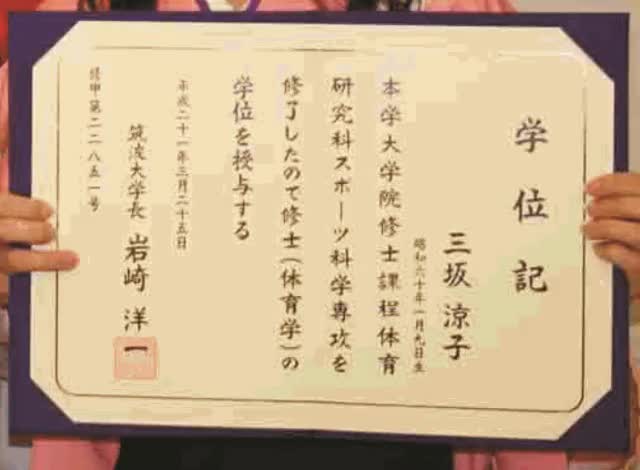 学位記
三坂涼子
昭和六十年一月九日生
本学大学院修士課程体育
研究科スポーツ科学専攻を
修了したので修士(体育学)の
学位を授与する
平成二十一年三月二十五日
筑波大学長 岩崎洋一
修甲第二二八五一号